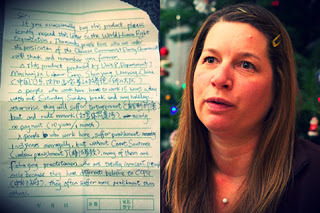 Sir:
If you occasionally buy this product, please
kindly resend this letter to the World Human Right
Organization. Thousands people here who are under
the persicution of the Chinese Communist Party Government
will thank and remember you forever.
This product produced by Unit 8, Department 2,
Labour Camp, Shen Yang, Liaoning, China
People who work here, have to work 15 hours a day
with out Saturday, Sunday break and any holidays,
otherwise, they will suffer torturement
beat and rude remark nearly
no payment (10 yuan/1 month).
People who work here, suffer punishment nearly
1~3 years averagely, but without Court Sentence
(unlaw punishment) many of them are
Falun gong practitioner, who are totally innocent people
only because they have different believe to CPG
they often suffer more punishment than
others.